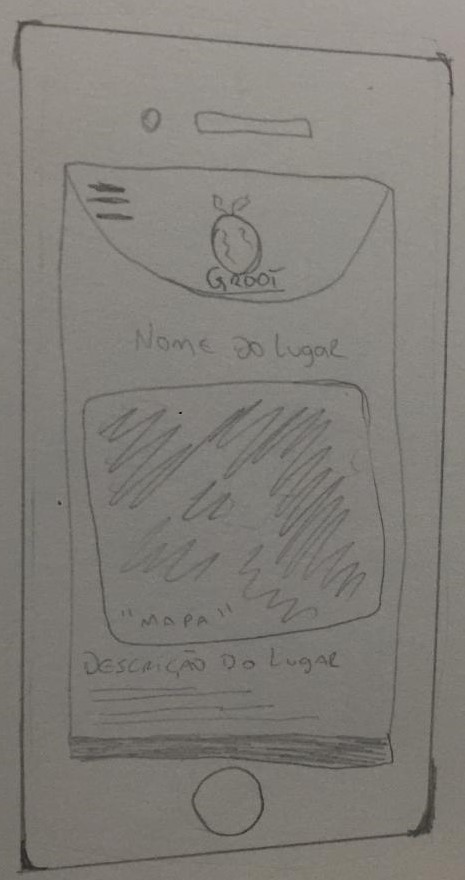 GROOT
Nome do Lugar
"MAPA"
DESCRIÇÃO DO Lugar